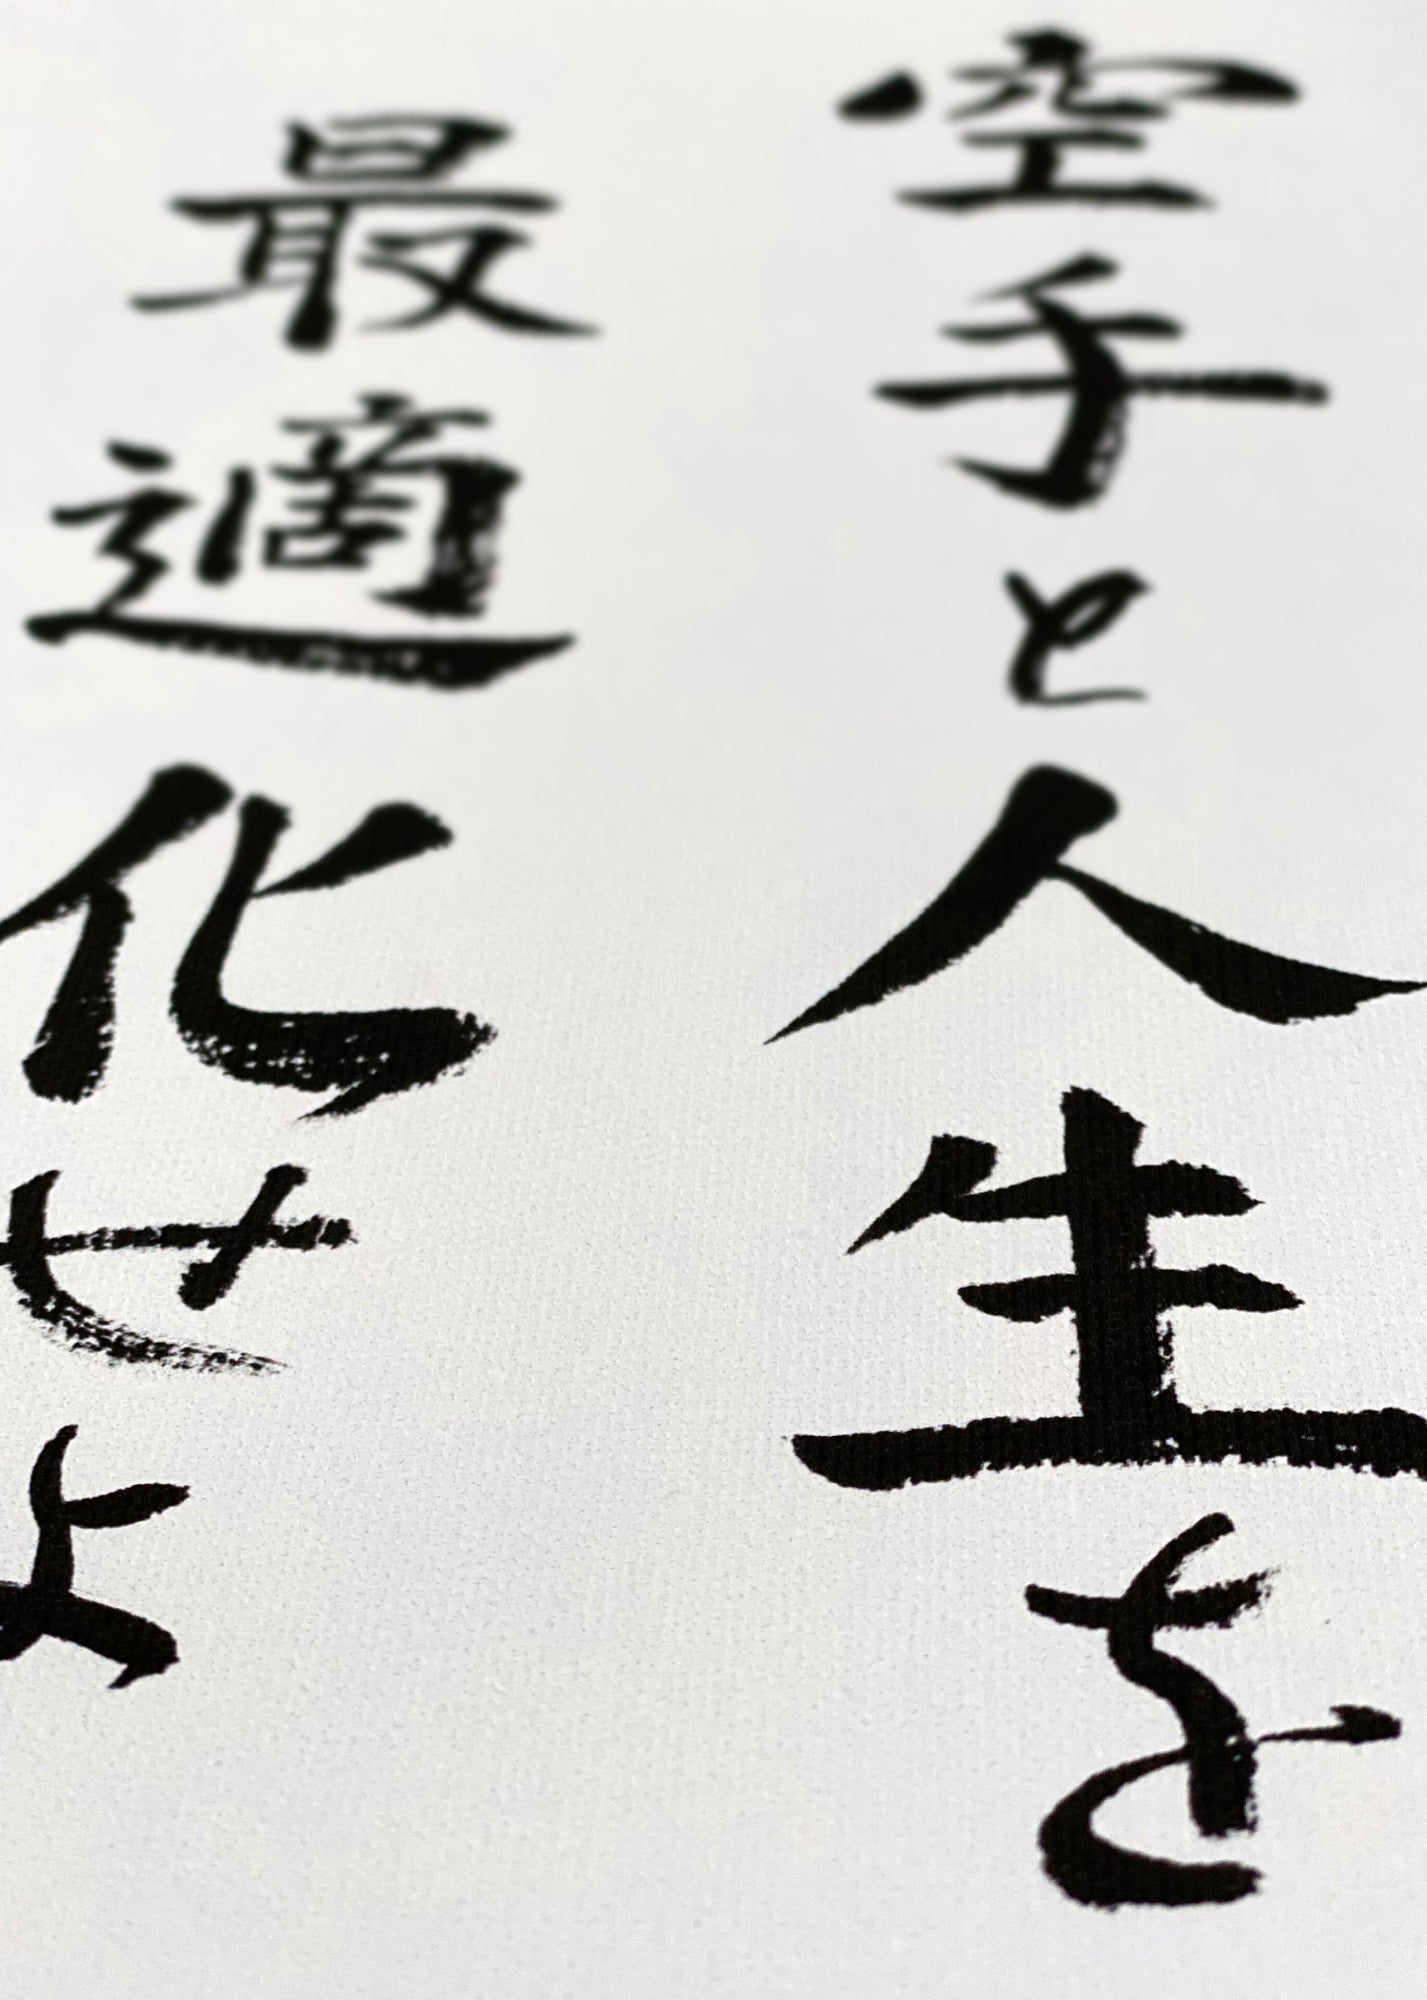 空手と人生を
最適化せよ